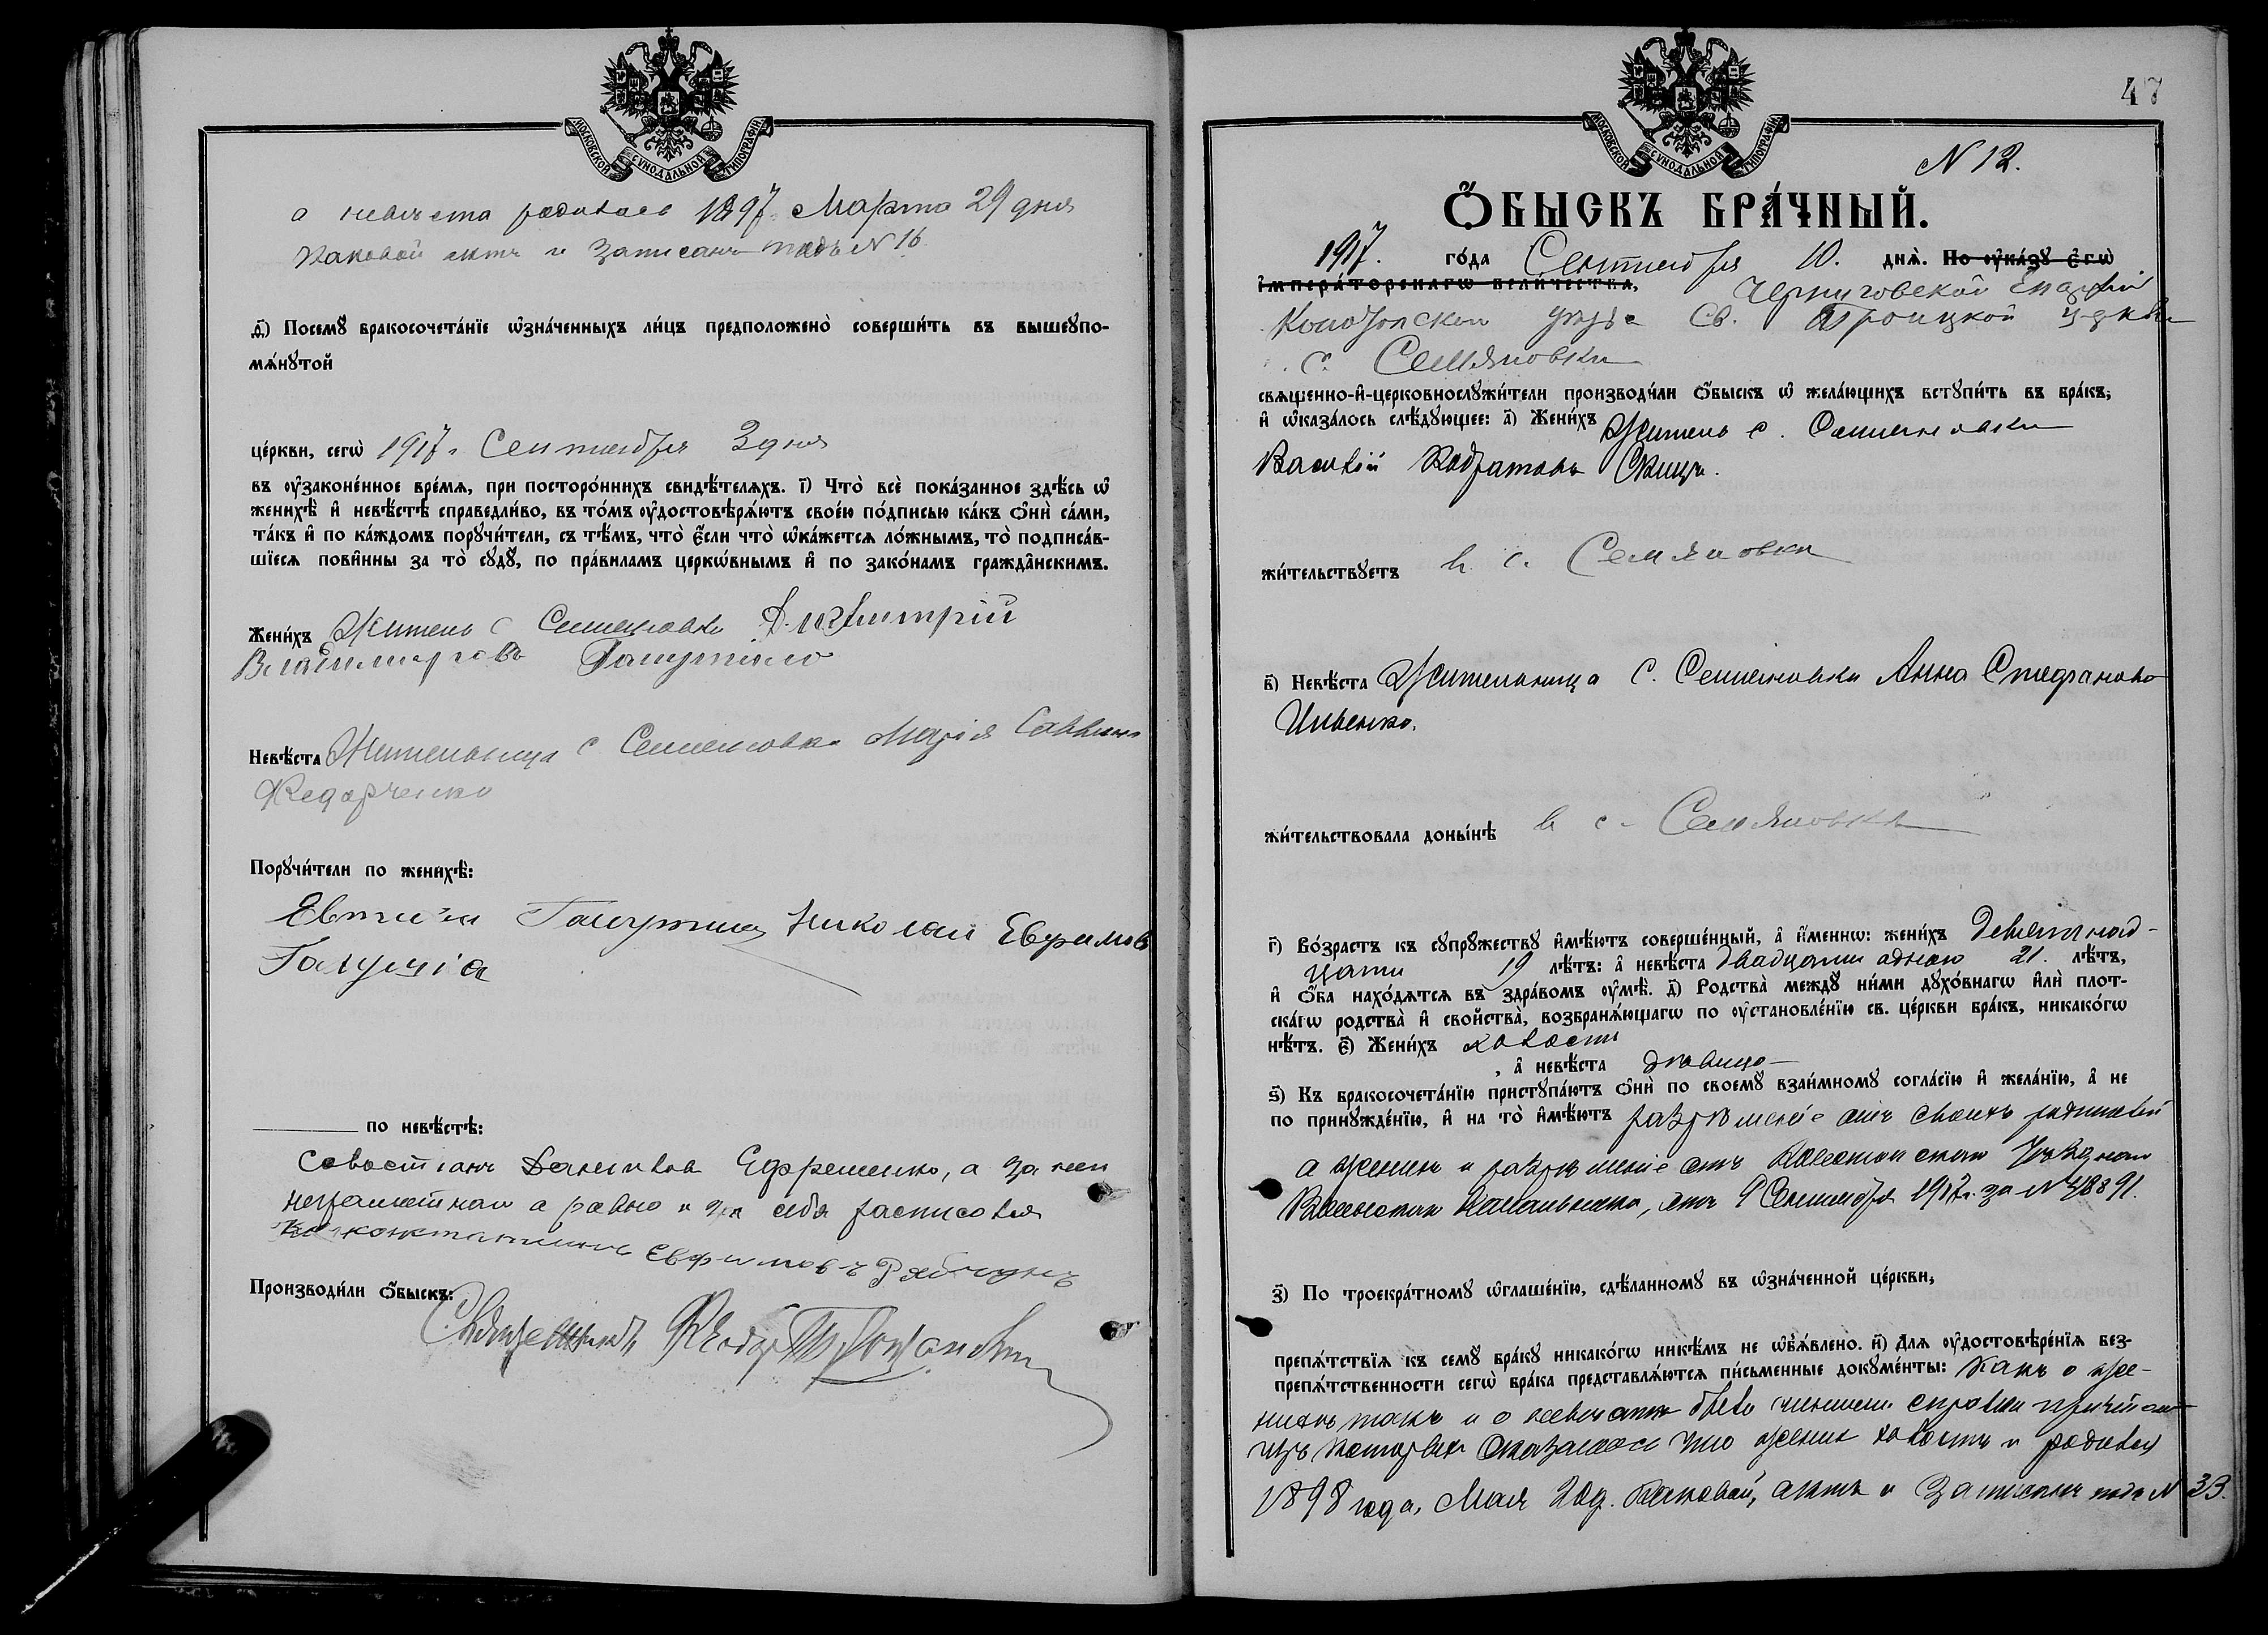 МОСКОВСКОЙ СѴНОДАЛЬНОЙ ТИПОГРАФІИ
а невеста родилась 1897 Марта 29 дня
Каковой актъ и записанъ подъ № 16.
д҃і) Посемꙋ̀ бракосочета́нїе ѡ҆зна́ченныхъ ли́цъ предположено̀ соверши́ть въ вышеꙋпо-
мѧ́нꙋтой
це́ркви, сегѡ̀ 1917 г. Сентября 3 дня
въ оу҆законе́нное вре́мѧ, при посторо́ннихъ свидѣ́телѧхъ. і҃) Что̀ всѐ пока́занное здѣ́сь ѡ҆
женихѣ̀ и҆ невѣ́стѣ справедли́во, въ то́мъ оу҆достовѣрѧ́ютъ свое́ю по́дписью ка́къ ѻ҆нѝ са́ми,
та́къ и҆ по ка́ждомъ порꙋчи́тели, съ тѣ́мъ, что̀ є҆́сли что̀ ѡ҆ка́жетсѧ ло́жнымъ, то̀ подписа́в-
шїесѧ пови́нны за то̀ сꙋдꙋ̀, по пра́виламъ церкѡ́внымъ и҆ по зако́намъ гражда̑нскимъ.
Жени́хъ Житель с Семеновки Димитрій
Владимировъ Галушка
Невѣ́ста Жительница с Семеновки Марія Саввина
Федорченко
Порꙋчи́тели по женихѣ̀:
Евтихій Галушка Николай Ефимов
Галушка
по невѣ́стѣ:
Севостіанъ Ефременко, а за него
неграмотнаго а равно и за себя росписался
Константинъ Евфимовъ Рябчунъ
Производи́ли ѻ҆́быскъ:
Священникъ
47
МОСКОВСКОЙ СѴНОДАЛЬНОЙ ТИПОГРАФІИ
N 12.
Ѻ҆́БЫСКЪ БРА́ЧНЫЙ.
1917. го́да Сентября 10. днѧ̀. По оу҆ка́зꙋ є҆гѡ̀
і҆мпера́торскагѡ вели́чества, Черниговской Епархіи
Конотопскаго уезда Св. Троицкой церкви
с. Семяновки
свѧщенно-и҆-церковнослꙋжи́тели производи́ли ѻ҆́быскъ ѡ҆ жела́ющихъ встꙋпи́ть въ бра́къ,
и҆ ѡ҆каза́лось слѣ́дꙋющее: а҃) Жени́хъ Житель с. Семеновки
Василій Кодратовъ
жи́тельствꙋетъ в с. Семяновки
в҃) Невѣ́ста Жительница с. Семеновки Анна Стефанова
Ивенко.
жи́тельствовала доны́нѣ в с. Семяновки
г҃) Во́зрастъ къ сꙋпрꙋ́жествꙋ и҆мѣ́ютъ соверше́нный, а҆ и҆́меннѡ: жени́хъ Девятнад-
цати 19 лѣ́тъ: а҆ невѣ́ста двадцати одного 21. лѣ́тъ,
и҆ ѻ҆́ба нахо́дѧтсѧ въ здра́вомъ оу҆мѣ̀. д҃) Родства̀ междꙋ̀ ни́ми дꙋхо́внагѡ и҆лѝ плот-
ска́гѡ родства̀ и҆ свойства̀, возбранѧ́ющагѡ по оу҆становле́нїю св. це́ркви бра́къ, никако́гѡ
нѣ́тъ. є҃) Жени́хъ холостъ
, а҆ невѣ́ста девица
ѕ҃) Къ бракосочета́нїю пристꙋпа́ютъ ѻ҆нѝ по своемꙋ̀ взаи́мномꙋ согла́сїю и҆ жела́нїю, а҆ не
по принꙋжде́нїю, и҆ на то̀ и҆мѣ́ютъ разрешеніе отъ своихъ родителей
а женихъ и разрешеніе отъ Уезднаго
Воинскаго Начальника, отъ 9 Сентября 1917 г. за №
з҃) По троекра́тномꙋ ѡ҆глаше́нїю, сдѣ́ланномꙋ въ ѡ҆зна́ченной це́ркви,
препѧ́тствїѧ къ семꙋ̀ бра́кꙋ никако́гѡ никѣ́мъ не ѡ҆б̾ѧ́влено. и҃) Для оу҆достовѣре́нїѧ без-
препѧ́тственности сегѡ̀ бра́ка представлѧ́ютсѧ пи́сьменные докꙋме́нты: Какъ о же-
нихе такъ и о невесте справки
изъ которыхъ оказалось что женихъ холостъ и родился
1898 года, Мая 20 д. каковой, актъ и записанъ подъ № 33.